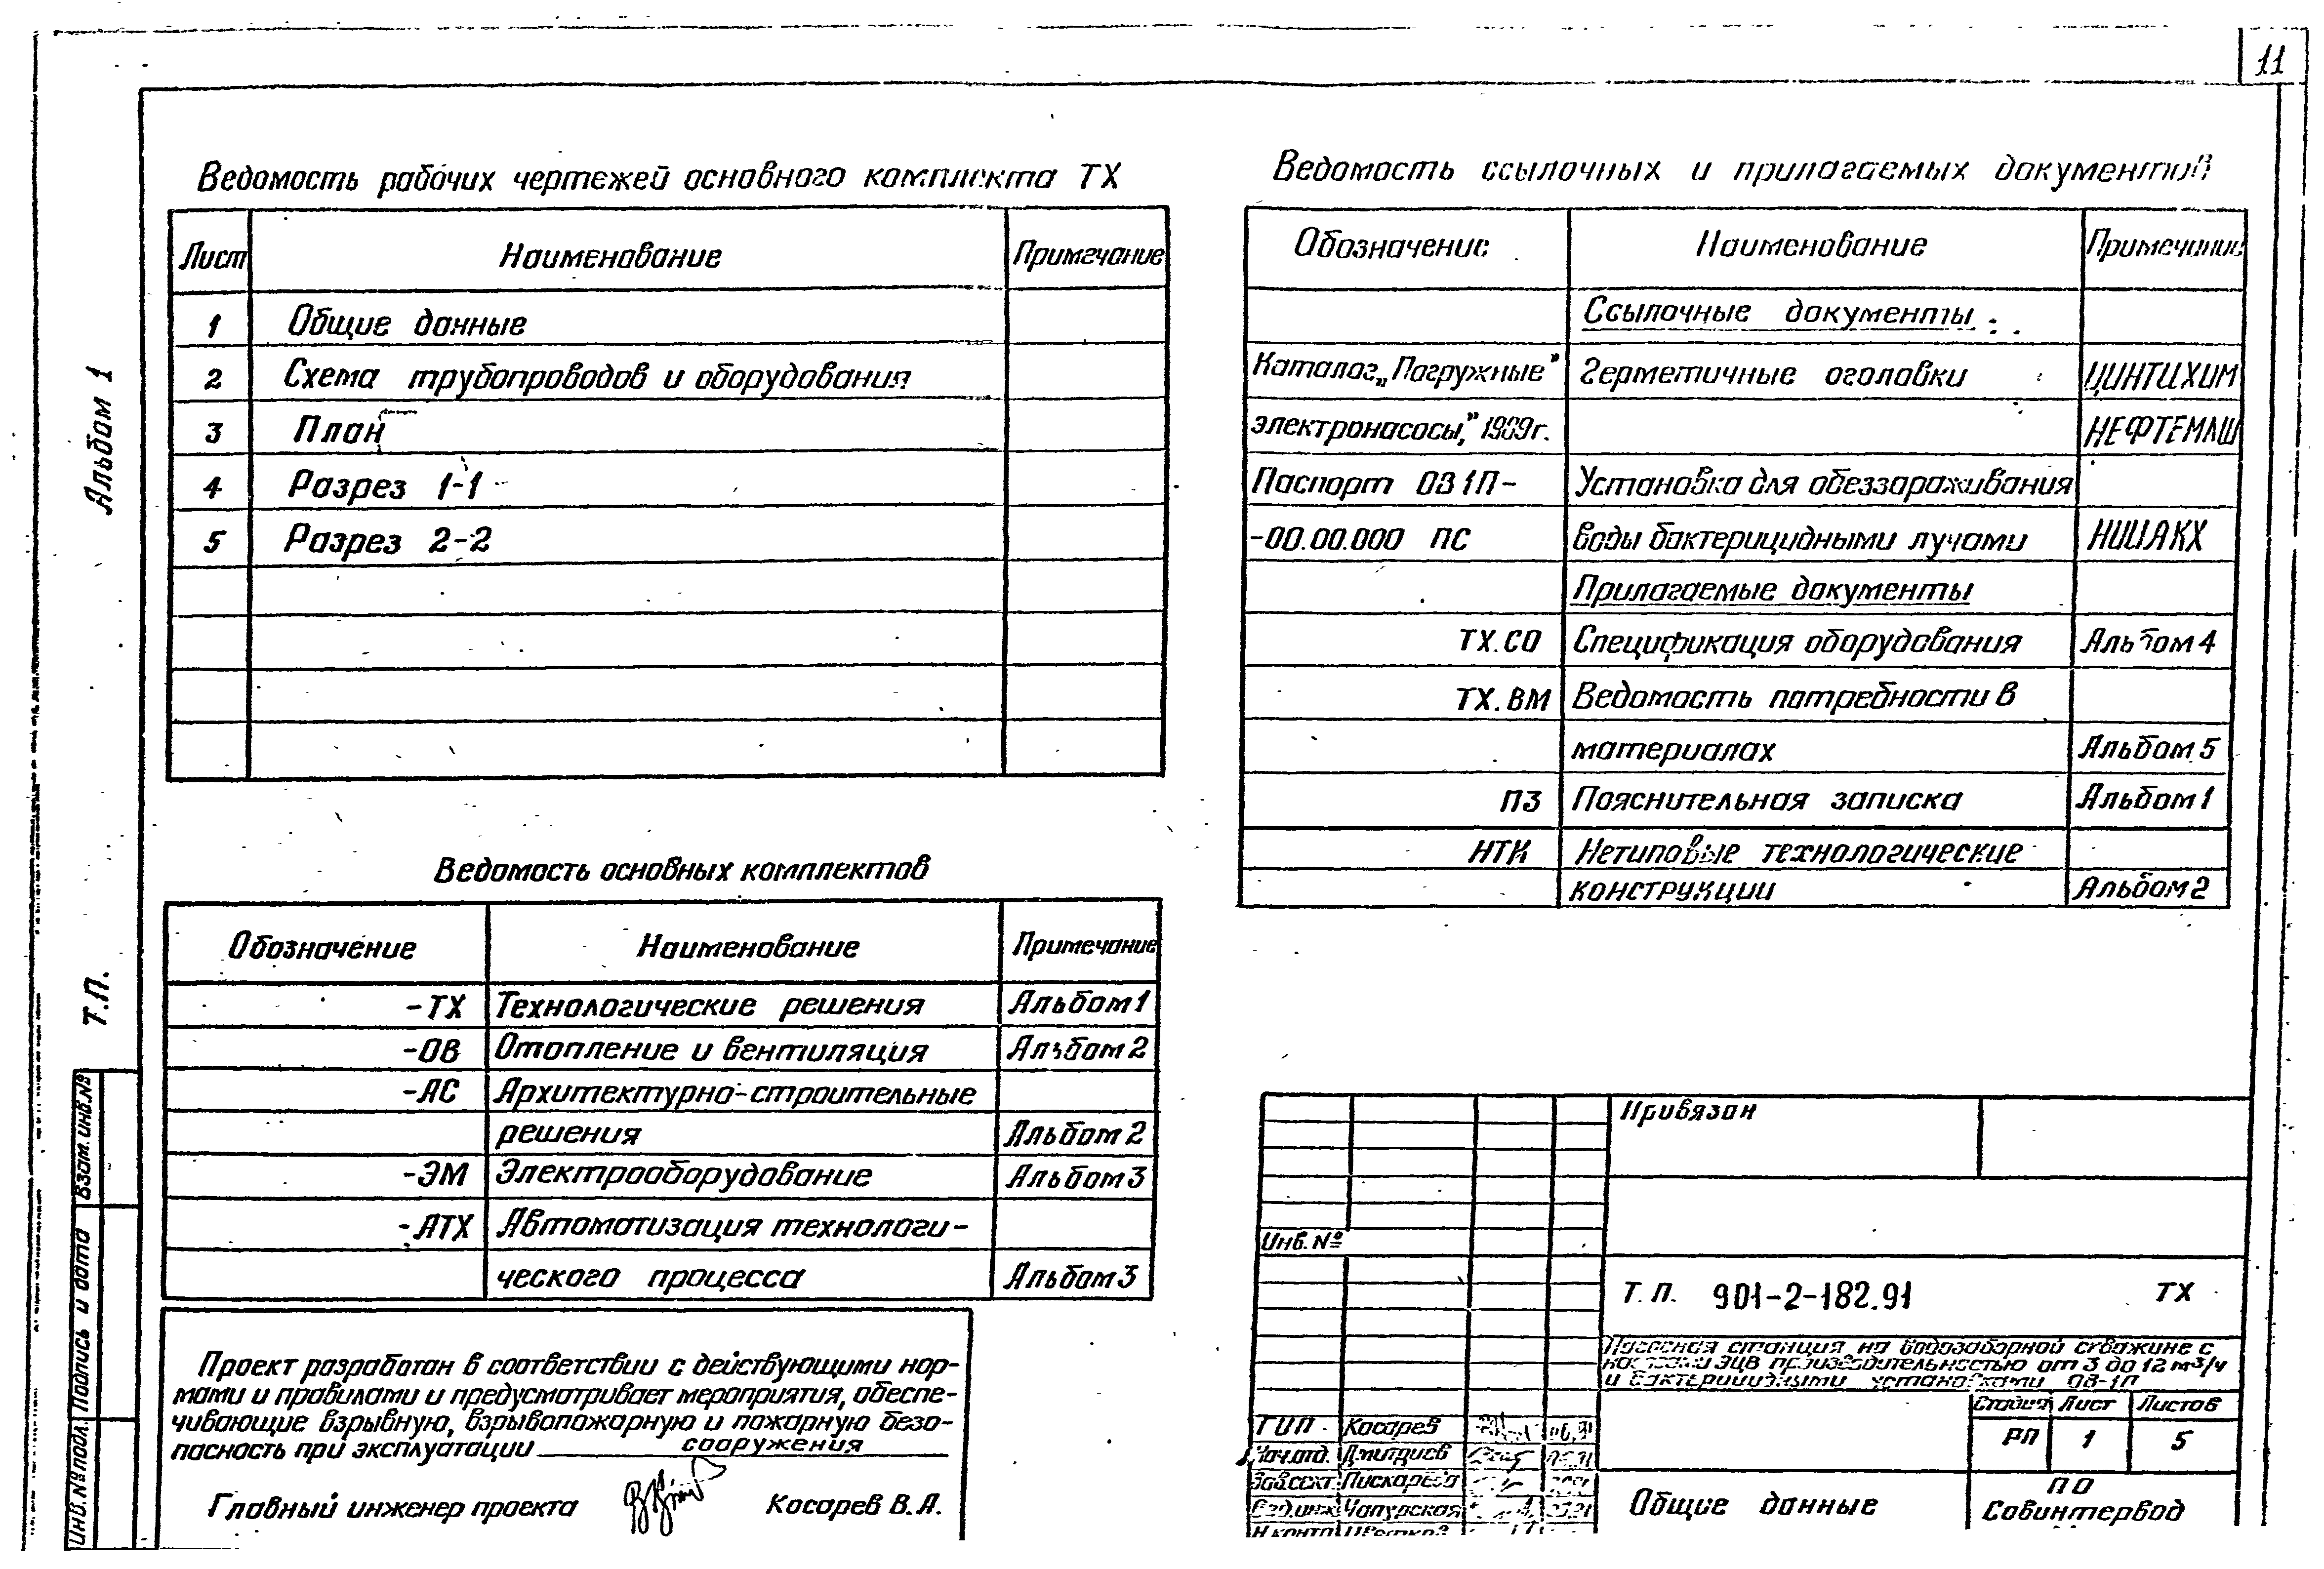 11
Альбом 1
Т.П.
Взам. инв. №
Подпись и дата
Инв. № подл.
Ведомость рабочих чертежей основного комплекта ТХ
Лист Наименование Примечание
1 Общие данные
2 Схема трубопроводов и оборудования
3 План
4 Разрез 1-1
5 Разрез 2-2
Ведомость основных комплектов
Обозначение Наименование Примечание
-ТХ Технологические решения Альбом 1
-ОВ Отопление и вентиляция Альбом 2
-АС Архитектурно-строительные
решения Альбом 2
-ЭМ Электрооборудование Альбом 3
-АТХ Автоматизация технологи-
ческого процесса Альбом 3
Проект разработан в соответствии с действующими нор-
мами и правилами и предусматривает мероприятия, обеспе-
чивающие взрывную, взрывопожарную и пожарную безо-
пасность при эксплуатации сооружения
Главный инженер проекта Косарев В.А.
Ведомость ссылочных и прилагаемых документов
Обозначение Наименование Примечание
Ссылочные документы:
Каталог „Погружные Герметичные оголовки ЦИНТИХИМ
электронасосы,” 1989г. НЕФТЕМАШ
Паспорт ОВ 1П- Установка для обеззараживания
-00.00.000 ПС воды бактерицидными лучами НИИАКХ
Прилагаемые документы
ТХ.СО Спецификация оборудования Альбом 4
ТХ.ВМ Ведомость потребности в
материалах Альбом 5
ПЗ Пояснительная записка Альбом 1
НТК Нетиповые технологические
конструкции Альбом 2
Привязан
Инв. №
Т.П. 901-2-182.91 ТХ
Насосная станция на водозаборной скважине с
насосами ЭЦВ производительностью от 3 до 12 м³/ч
и бактерицидными установками ОВ-1П
Стадия Лист Листов
РП 1 5
ГИП Косарев
Нач.отд. Дмитриев
Зав.сект. Пискарева
Вед.инж. Чапурская
Н.контр.
Общие данные
ПО
Совинтервод